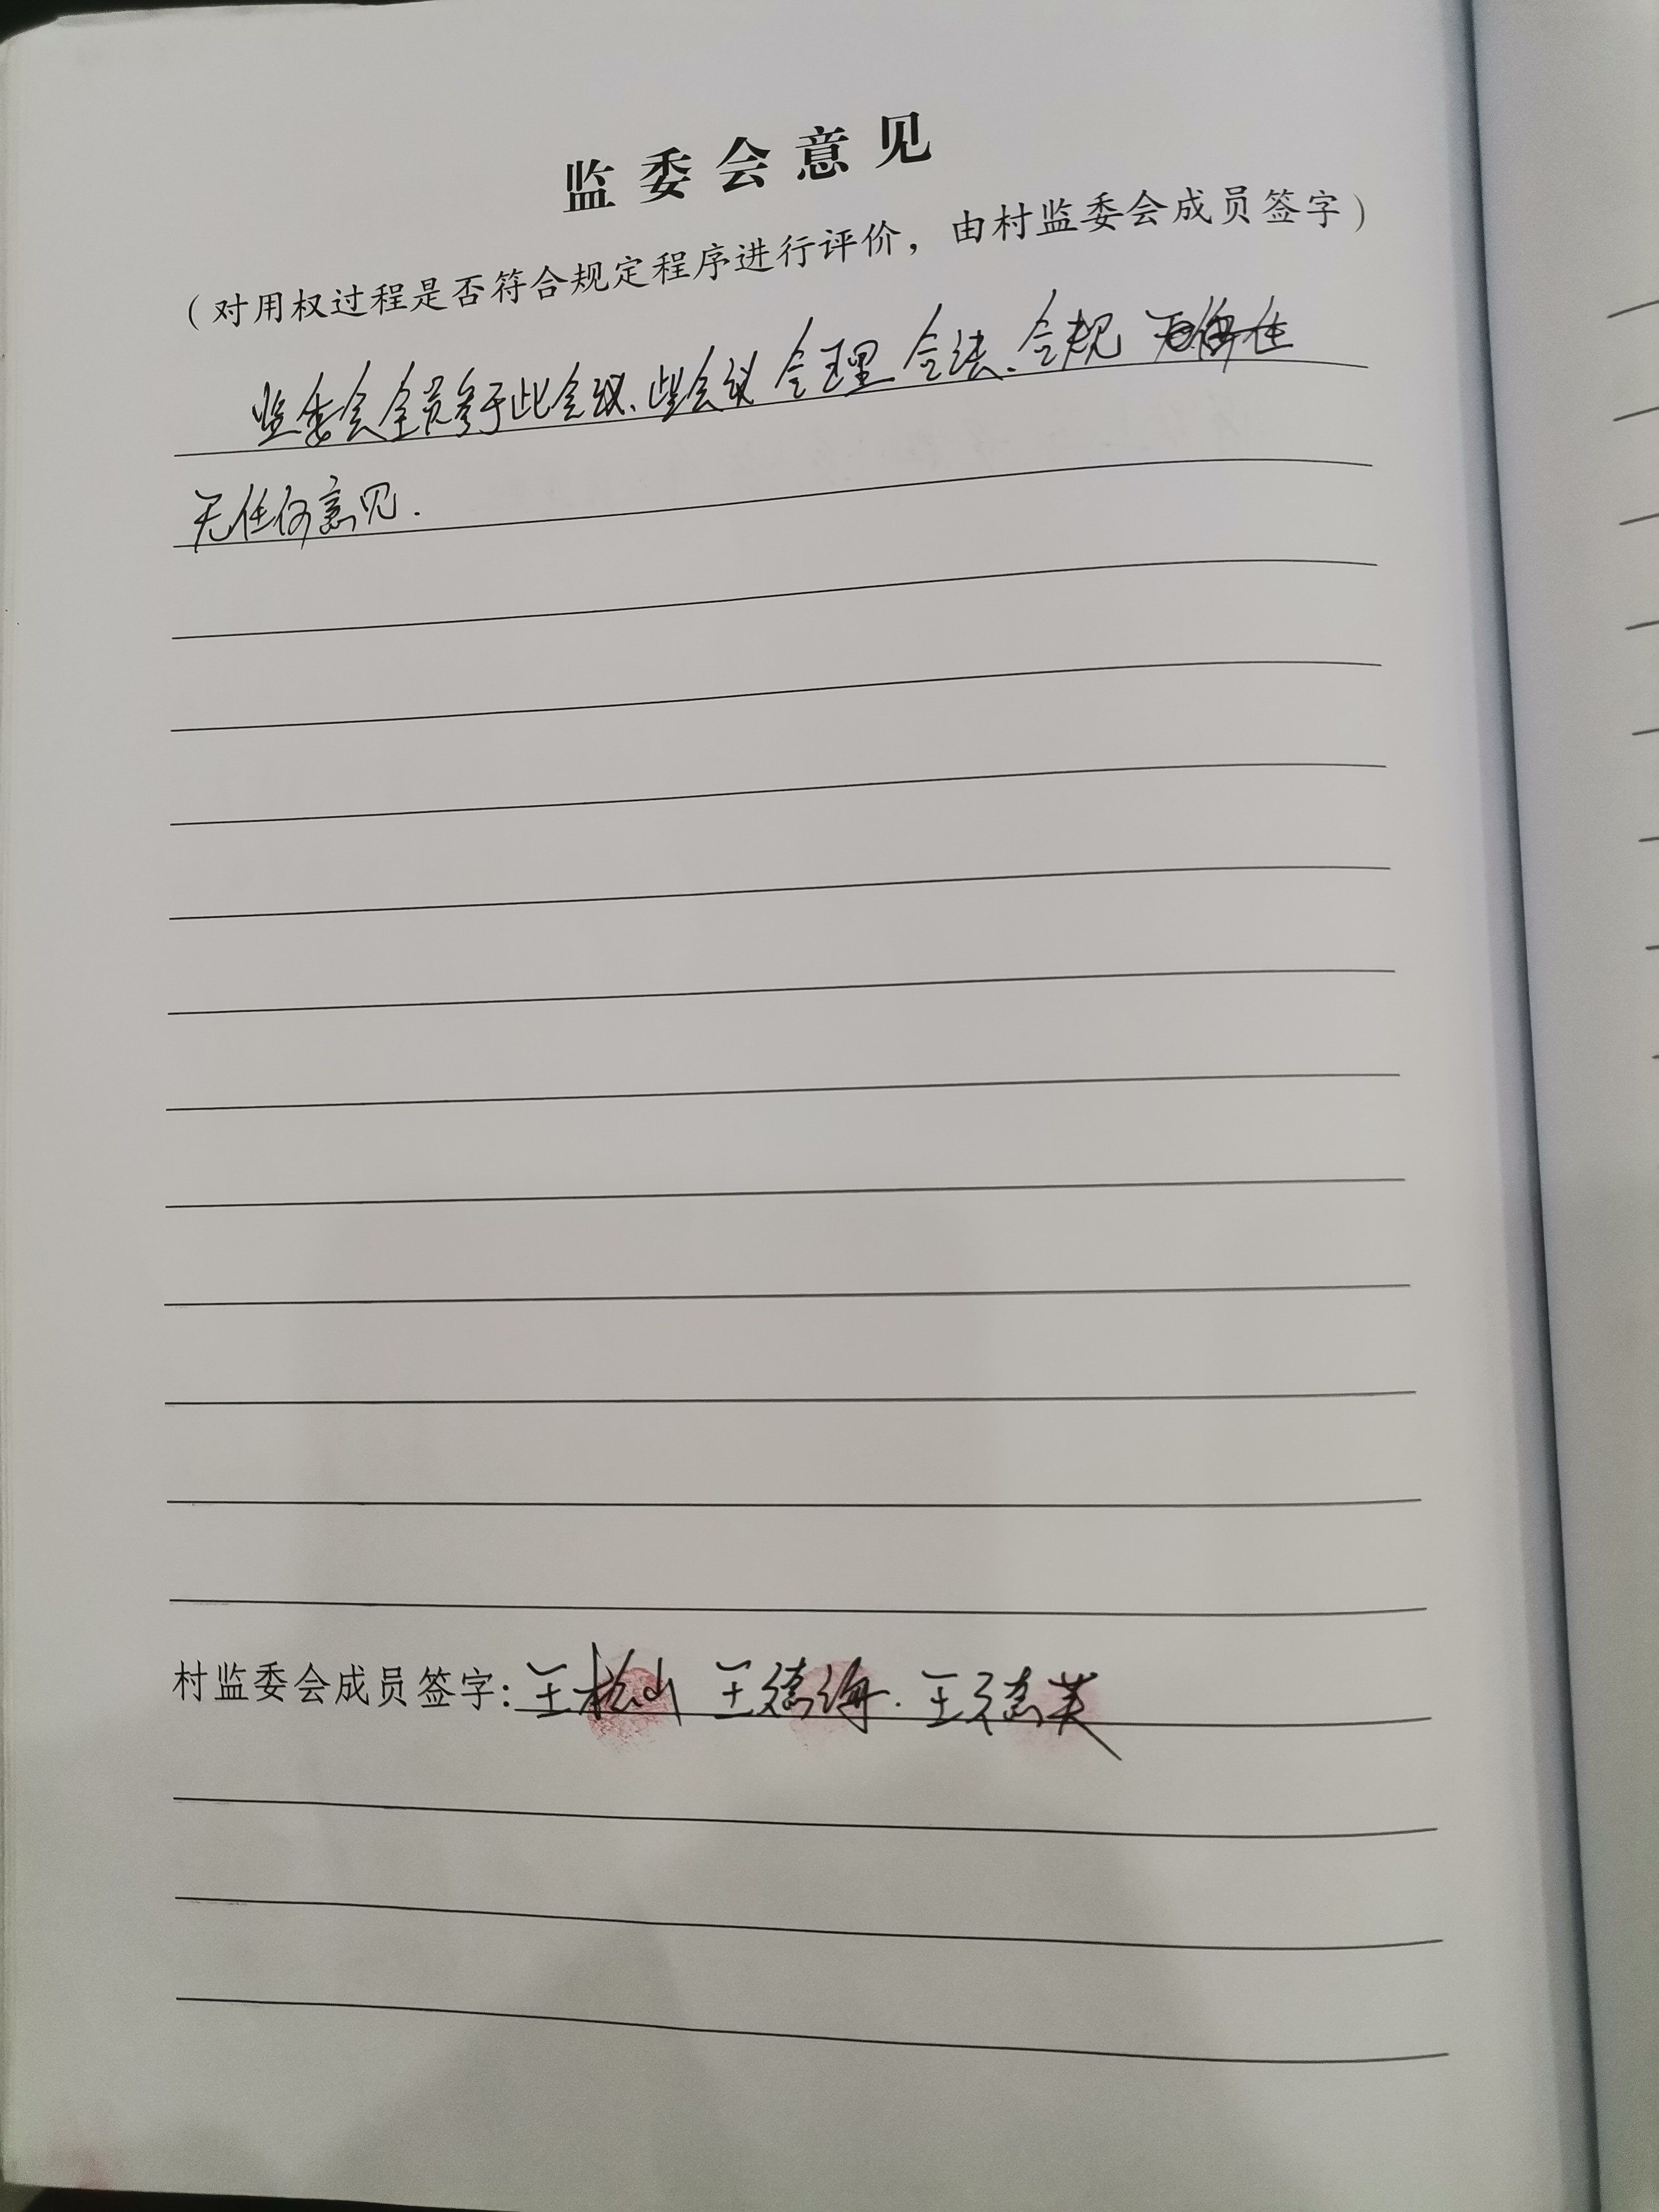 监委会意见
（对用权过程是否符合规定程序进行评价，由村监委会成员签字）
监委会全员参于此会议、此会议合理合法、合规
无任何意见.
村监委会成员签字：王松山 王德海. 王德英